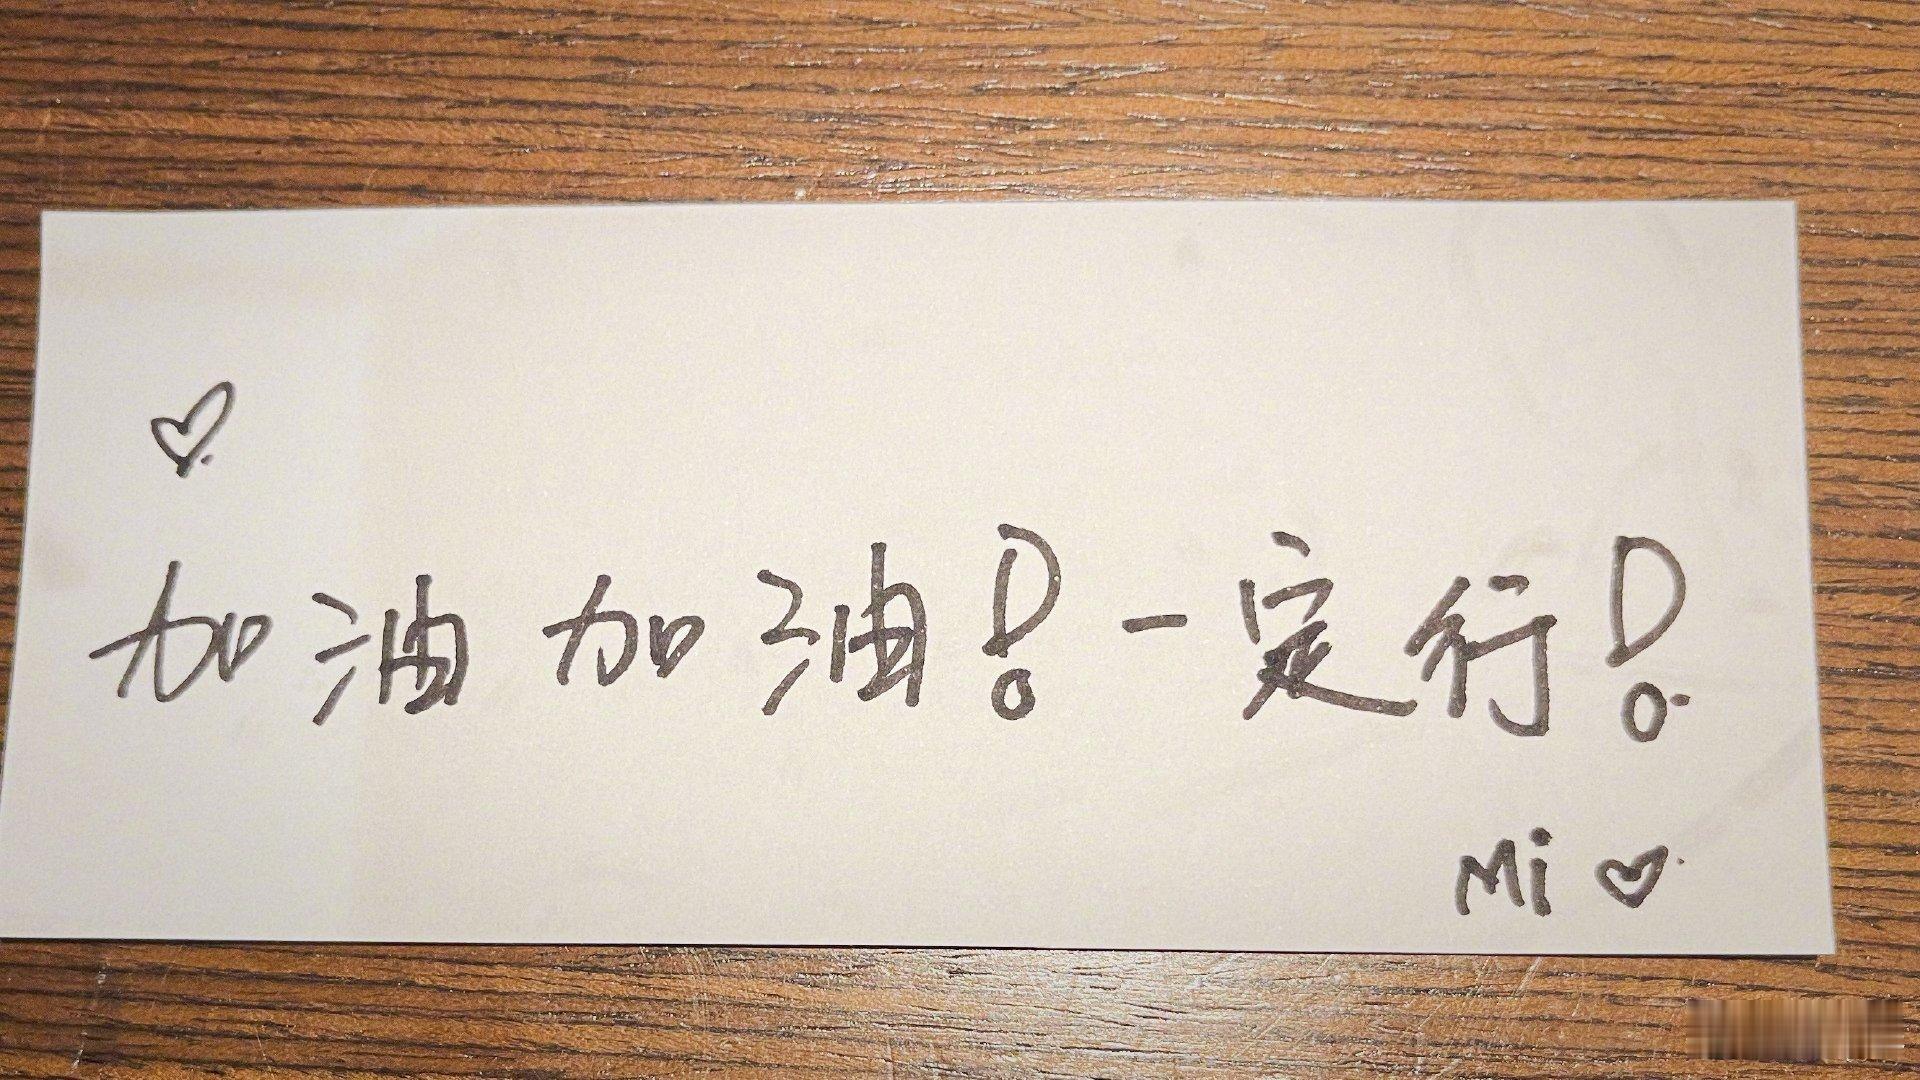 ♡
加油加油！一定行！
Mi ♡